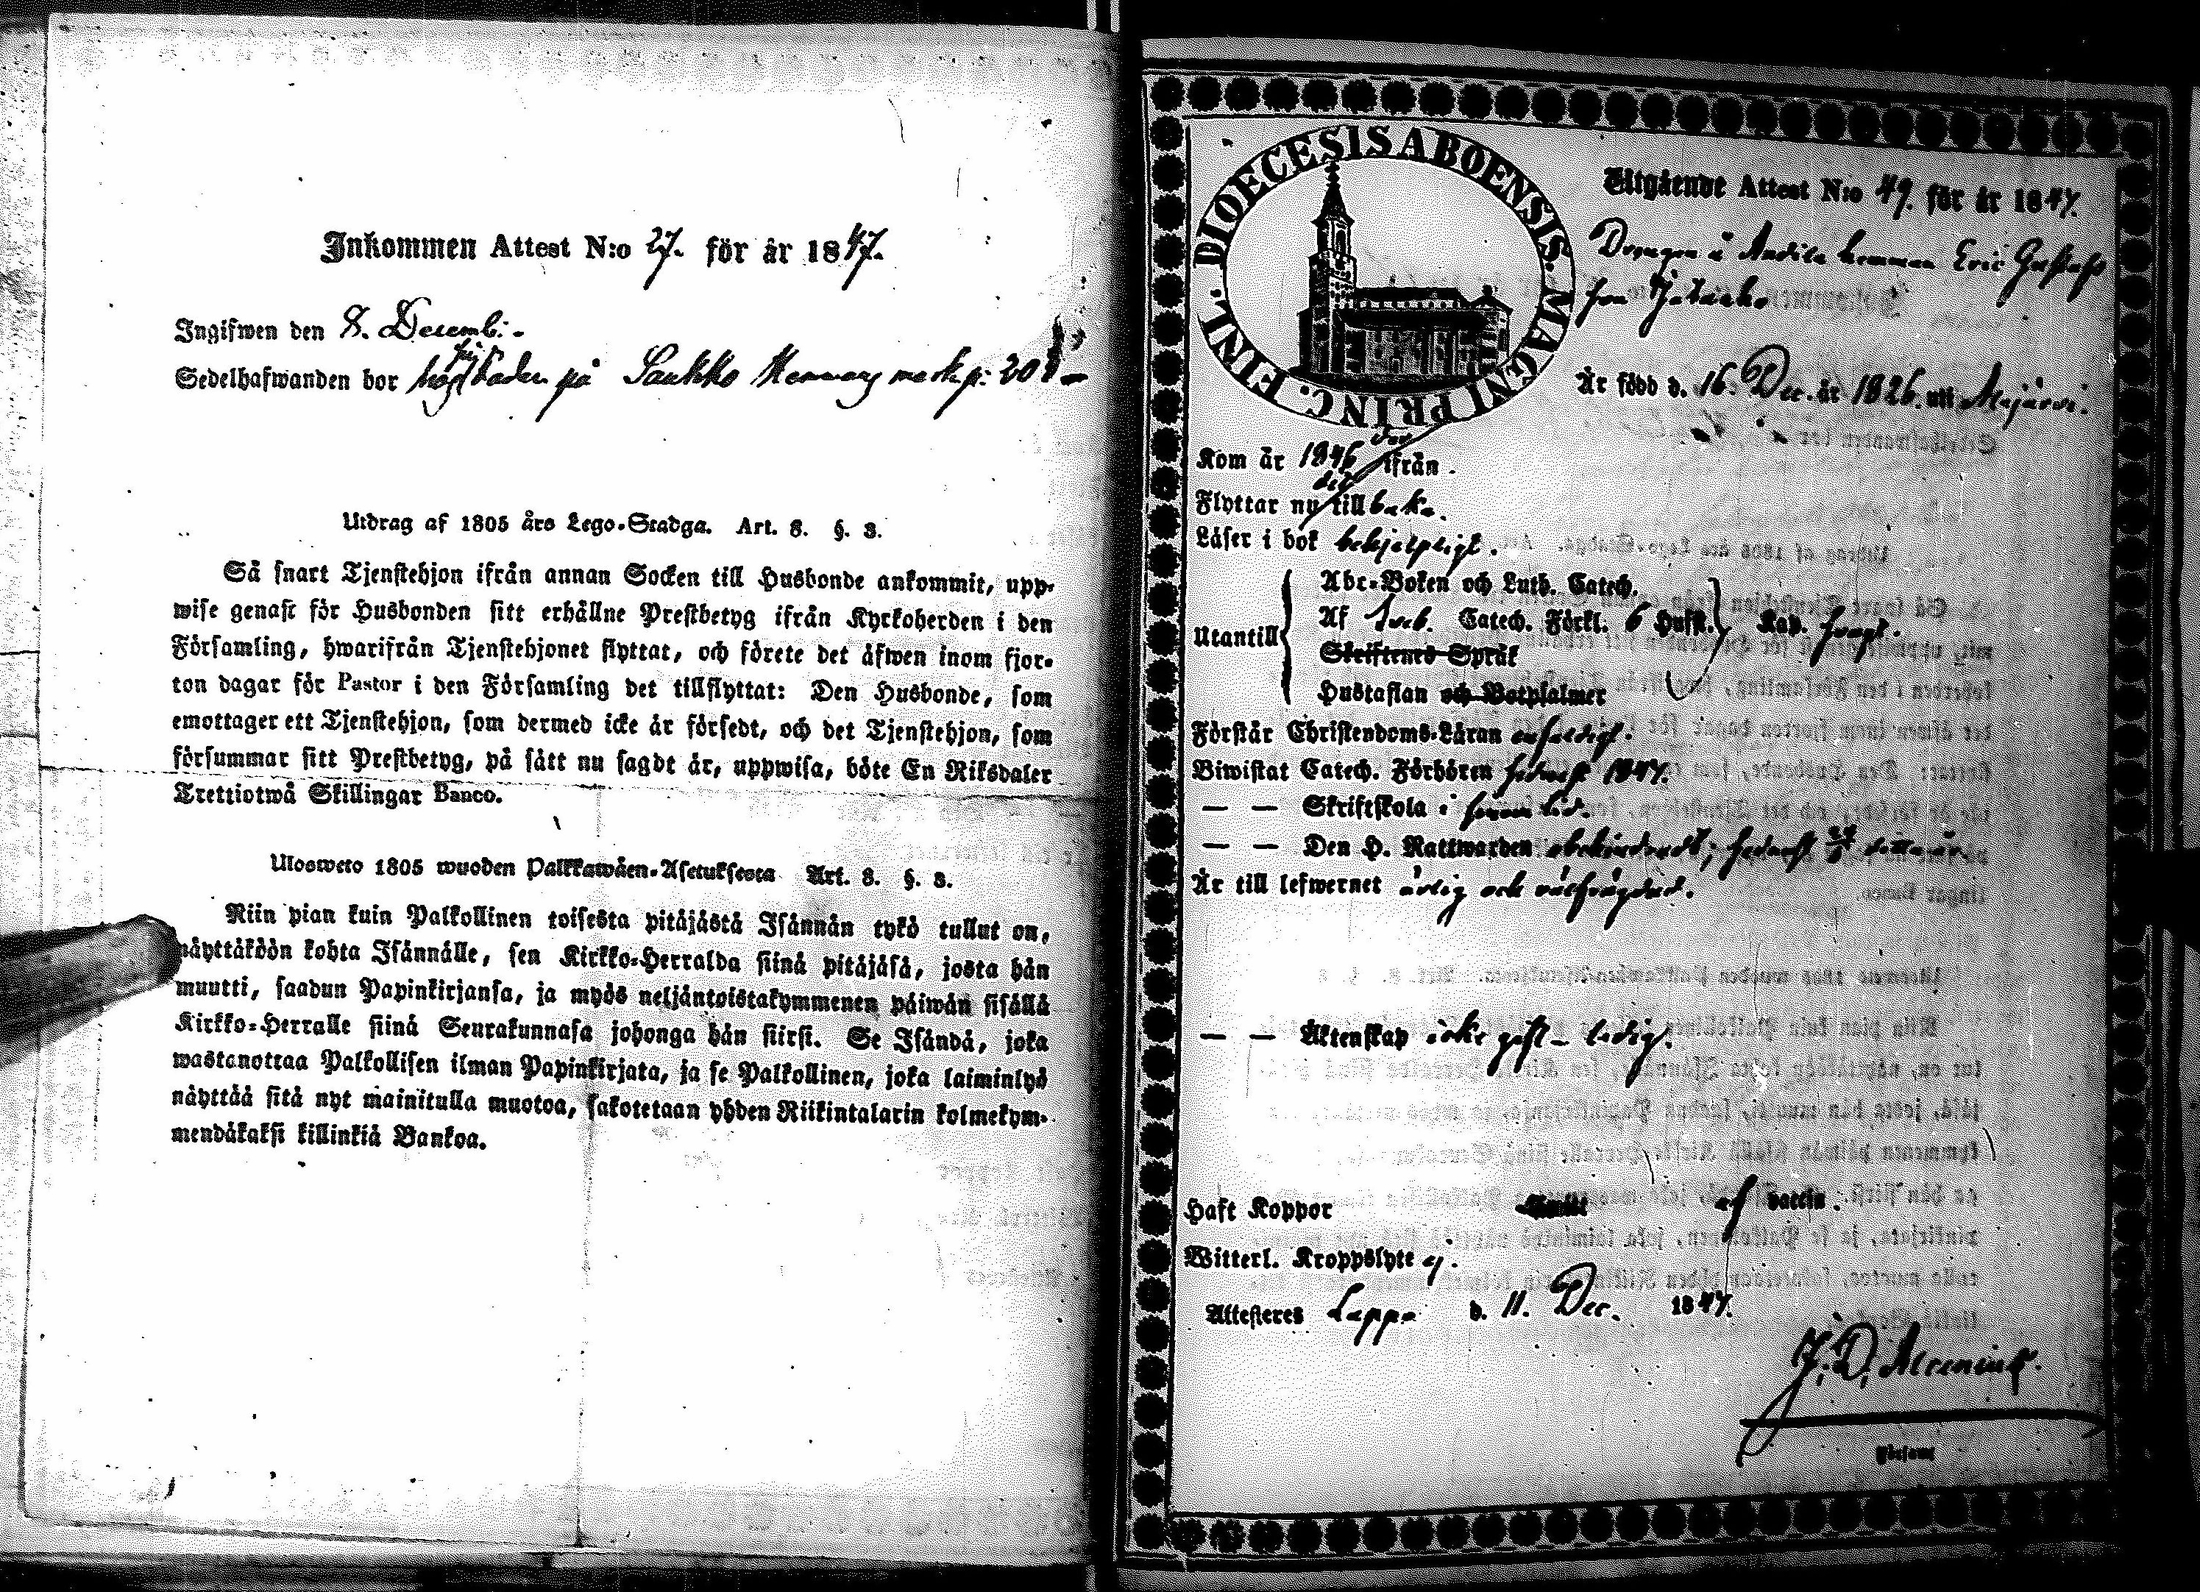 Inkommen Attest N:o 27. för år 1847.
Ingifwen den 8. Decemb:
Sedelhafwanden bor på Saukko
Utdrag af 1805 års Lego-Stadga. Art. 8. §. 3.
Så snart Tjenstehjon ifrån annan Socken till Husbonde ankommit, upp-
wise genast för Husbonden sitt erhållne Prestbetyg ifrån Kyrkoherden i den
Församling, hwarifrån Tjenstehjonet flyttat, och förete det äfwen inom fjor-
ton dagar för Pastor i den Församling det tillflyttat: Den Husbonde, som
emottager ett Tjenstehjon, som dermed icke är försedt, och det Tjenstehjon, som
försummar sitt Prestbetyg, på sätt nu sagdt är, uppwisa, böte En Riksdaler
Trettiotwå Skillingar Banco.
Ulosweto 1805 wuoden Palkkawäen-Asetuksesta Art. 8. §. 3.
Niin pian kuin Palkollinen toisesta pitäjästä Isännän tykö tullut on,
näyttäköön kohta Isännälle, sen Kirkko-Herralda siinä pitäjäsä, josta hän
muutti, saadun Papinkirjansa, ja myös neljäntoistakymmenen päiwän sisällä
Kirkko-Herralle siinä Seurakunnasa johonga hän siirsi. Se Isändä, joka
wastanottaa Palkollisen ilman Papinkirjata, ja se Palkollinen, joka laiminlyö
näyttää sitä nyt mainitulla muotoa, sakotetaan yhden Riikintalarin kolmekym-
mendäkaksi killinkiä Bankoa.
DIOECESIS ABOENSIS. MAGNI PRINC. FINL.
Utgående Attest N:o 49. för år 1847.
Drengen å Andila hemman Eric Gustafs
son
Är född d. 16. Dec. år 1826. uti Alajärvi.
Kom år 1846 ifrån.
Flyttar nu tillbaka.
Läser i bok behjelpligt.
Utantill
Abc-Boken och Luth. Catech.
Af Sveb. Catech. Förkl. 6 Hufst. Kap.
Skriftenes Språk
Hustaflan och Botpsalmer
Förstår Christendoms-Läran enfaldigt.
Biwistat Catech. Förhören sednast 1847.
— — Skriftskola i sinom tid.
— — Den H. Nattwarden obehindradt; sednast detta år.
Är till lefwernet ärlig och välfrägdad.
— — Äktenskap icke gift – ledig.
Haft Koppor af
Witterl. Kroppslyte ej.
Attesteres Lappo d. 11. Dec. 1847.
J. D. Alcenius.